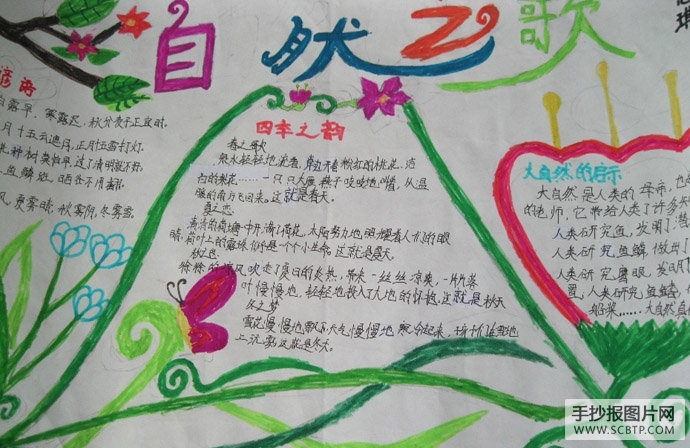 自然之歌
谚语
白露早，寒露迟，秋分麦子正宜时。
月十五云遮月，正月十五雪打灯。
鱼鳞斑，晒谷不用翻。
夏雾晴，秋雾阴，冬雾雪
四季之韵
春之歌
泉水轻轻地流着，岸边开着粉红的桃花、洁
白的梨花………一只只大雁、燕子吱吱地叫着，从温
暖的南方飞回来。这就是春天。
夏之恋
清清的荷塘中开满了荷花，太阳努力地照耀着人们的眼
睛，荷叶上的露珠，似乎是一个个小生命。这就是夏天。
秋之思
徐徐的凉风吹走了夏日的炎热，带来一丝丝凉爽，一片片落
叶慢慢地，轻轻地投入了大地的怀抱。这就是秋天
冬之梦
雪花慢慢地飘，天气慢慢地寒冷起来，
这就是冬天。
大自然的启示
大自然是人类的母亲，也是
的老师，它带给人类了许多
人类研究鱼，发明了潜
人类研究鱼鳞，做出了
人类研究鹰眼，发明了
置，人类研究鱼鳔，
船来……大自然
手抄报图片网
WWW.SCBTP.COM